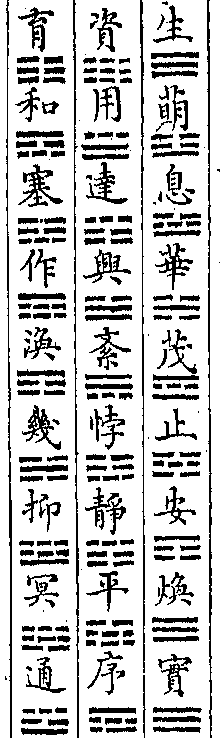 生萌息華茂止安煥實
資用達興紊悖靜平序
育和塞作渙幾抑冥通